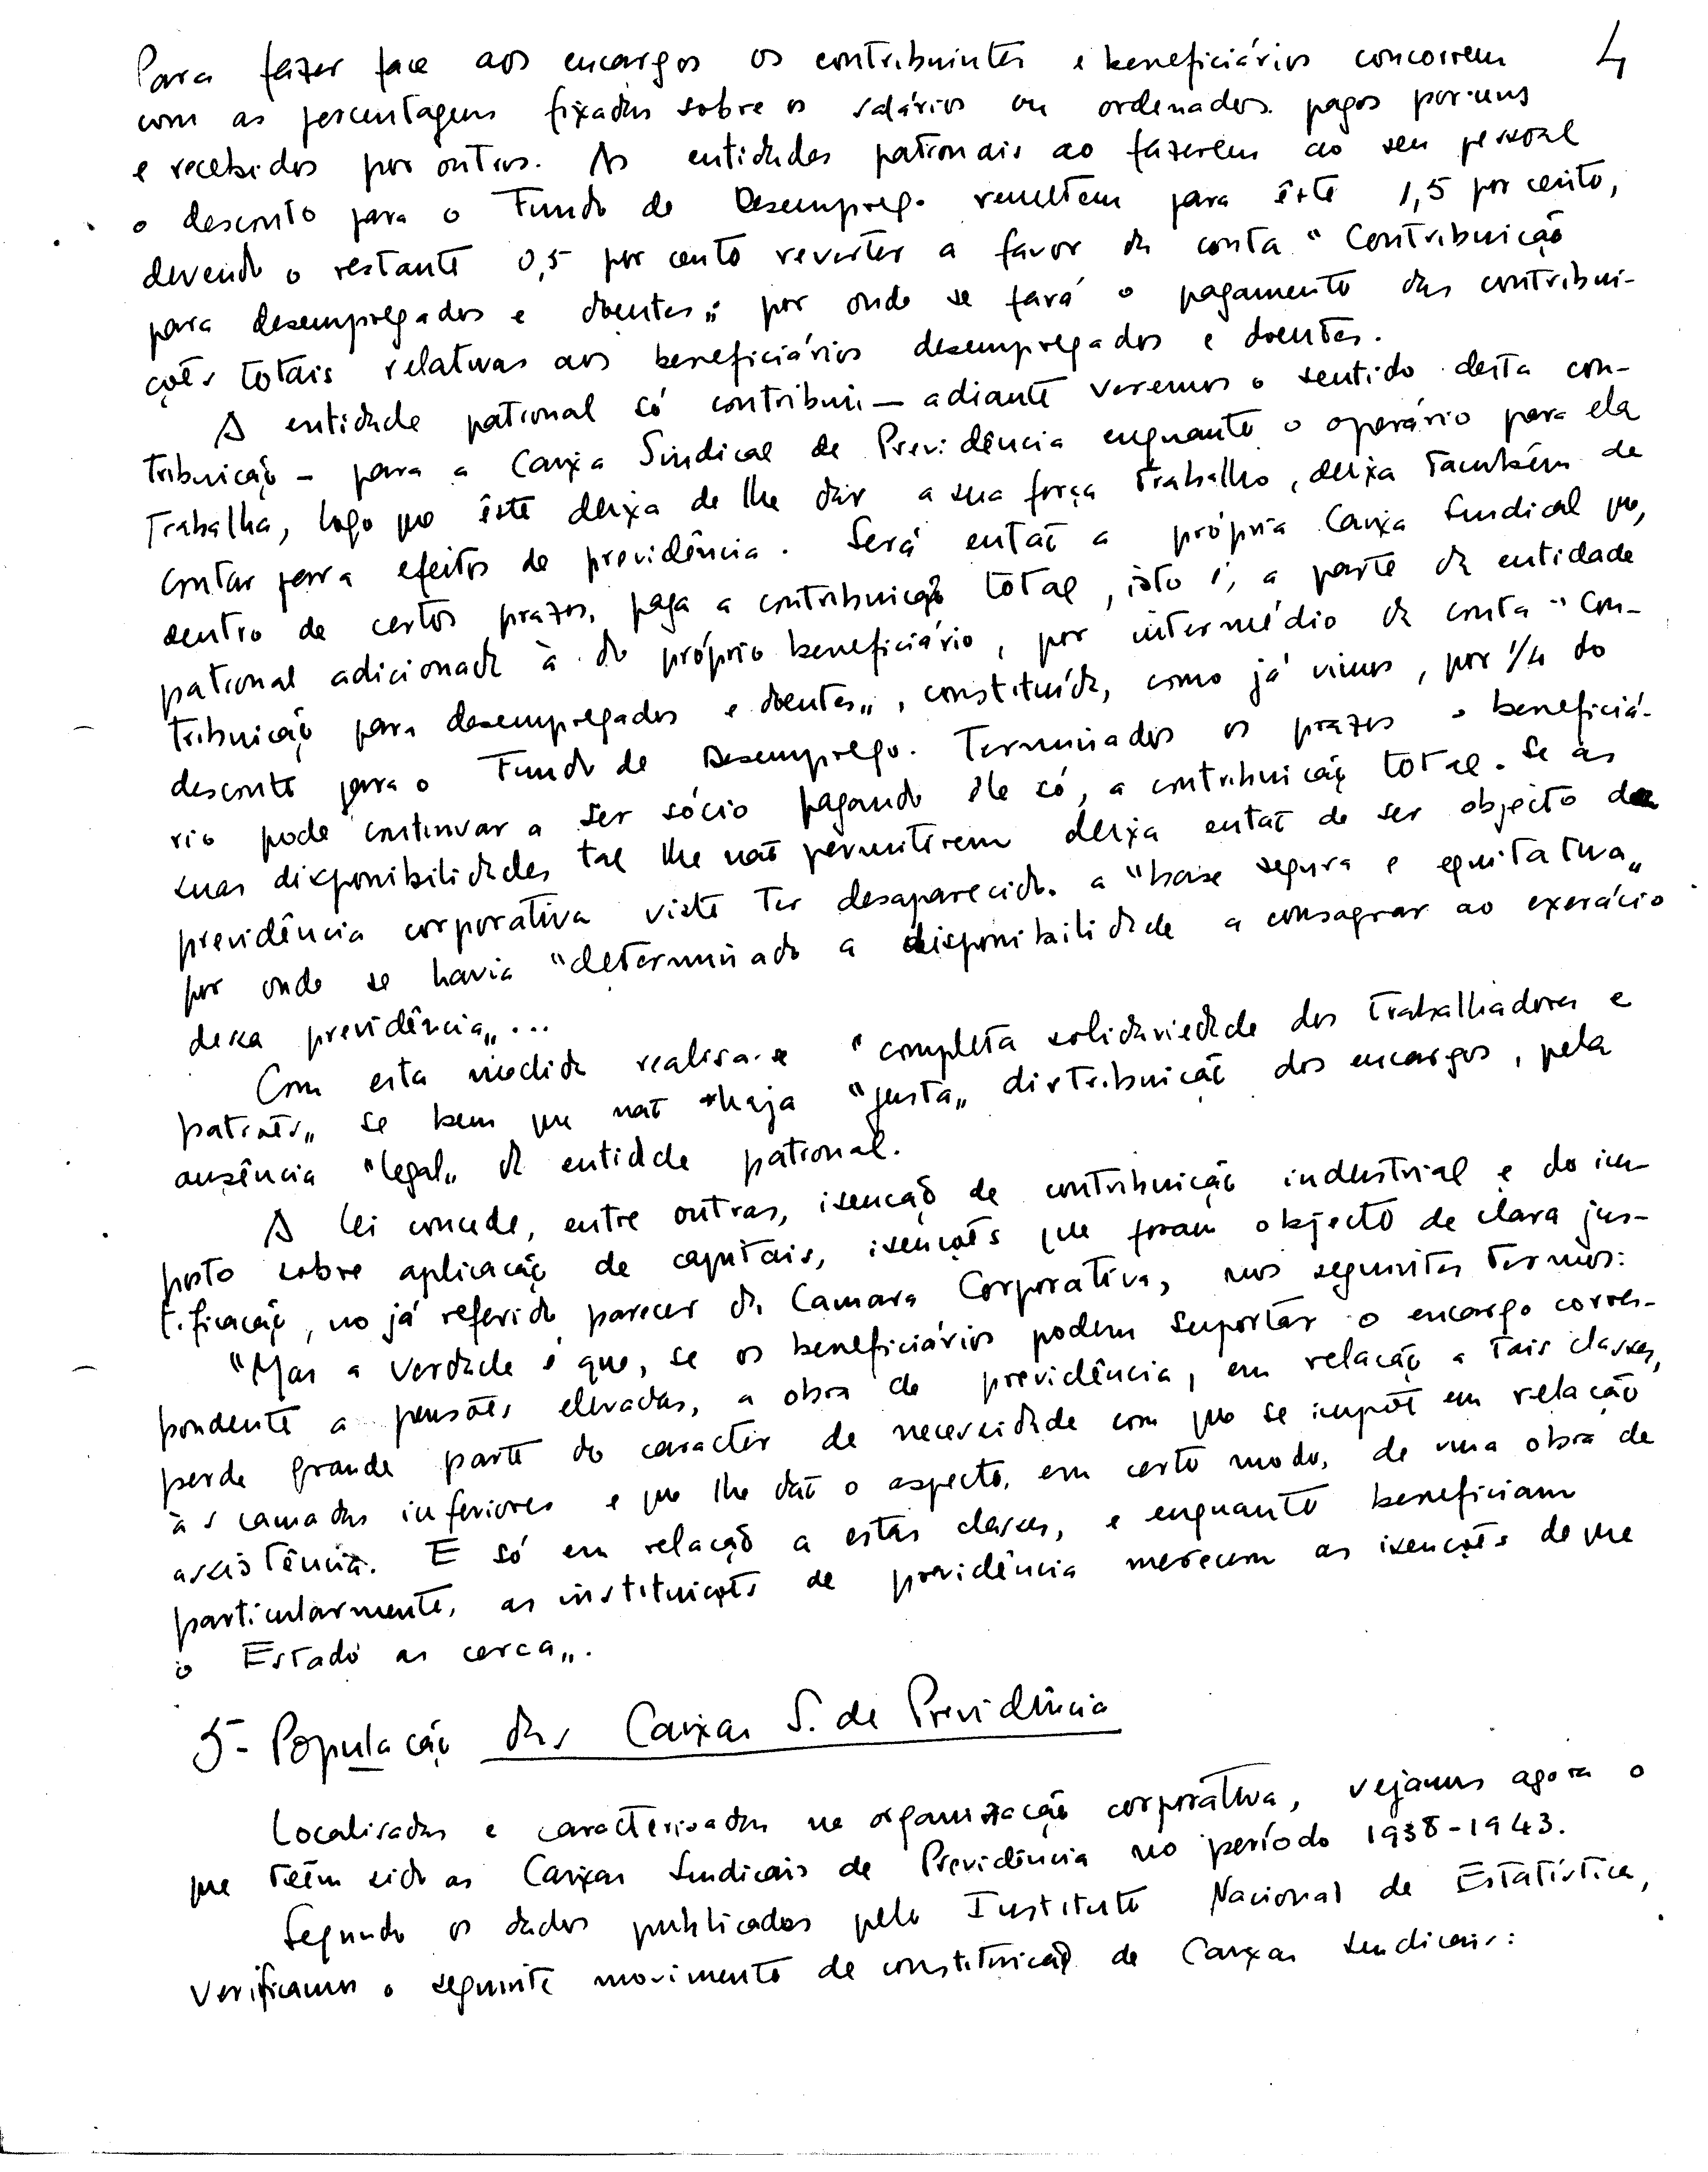 4
Para fazer face aos encargos os contribuintes e beneficiários concorrem
com as percentagens fixadas sobre os salários ou ordenados pagos por uns
e recebidos por outros. As entidades patronais ao fazerem ao seu pessoal
o desconto para o Fundo de Desemprego remetem para êste 1,5 por cento,
devendo o restante 0,5 por cento reverter a favor da conta "Contribuição
para desempregados e doentes„ por onde se fará o pagamento das contribui-
ções totais relativas aos beneficiários desempregados e doentes.
A entidade patronal só contribui — adiante veremos o sentido desta con-
tribuição — para a Caixa Sindical de Previdência enquanto o operário para ela
trabalha, logo que êste deixa de lhe dar a sua força trabalho, deixa também de
contar para efeitos de previdência. Será então a própria Caixa Sindical que,
dentro de certos prazos, paga a contribuição total, isto é, a parte da entidade
patronal adicionada à do próprio beneficiário, por intermédio da conta "Con-
tribuição para desempregados e doentes„, constituída, como já vimos, por 1/4 do
desconto para o Fundo de Desemprego. Terminados os prazos o beneficiá-
rio pode continuar a ser sócio pagando êle só, a contribuição total. Se as
suas disponibilidades tal lhe não permitirem deixa então de ser objecto da
previdência corporativa visto ter desaparecido a "base segura e equitativa„
por onde se havia "determinado a disponibilidade a consagrar ao exercício
dessa previdência„...
Com esta medida realisa-se "completa solidariedade dos trabalhadores e
patrões„ se bem que não haja "justa„ distribuição dos encargos, pela
ausência "legal„ da entidade patronal.
A lei concede, entre outras, isenção de contribuição industrial e do im-
posto sobre aplicação de capitais, isenções que foram objecto de clara jus-
tificação, no já referido parecer da Camara Corporativa, nos seguintes termos:
"Mas a verdade é que, se os beneficiários podem suportar o encargo corres-
pondente a pensões elevadas, a obra de previdência, em relação a tais classes,
perde grande parte do caracter de necessidade com que se impõe em relação
às camadas inferiores e que lhe dão o aspecto, em certo modo, de uma obra de
assistência. E só em relação a estas classes, e enquanto beneficiam
particularmente, as instituições de previdência merecem as isenções de que
o Estado as cerca„.
5- População das Caixas S. de Previdência
Localisadas e caracterisadas na organização corporativa, vejamos agora o
que têem sido as Caixas Sindicais de Previdência no período 1938-1943.
Segundo os dados publicados pelo Instituto Nacional de Estatística,
verificamos o seguinte movimento de constituição de Caixas Sindicais: